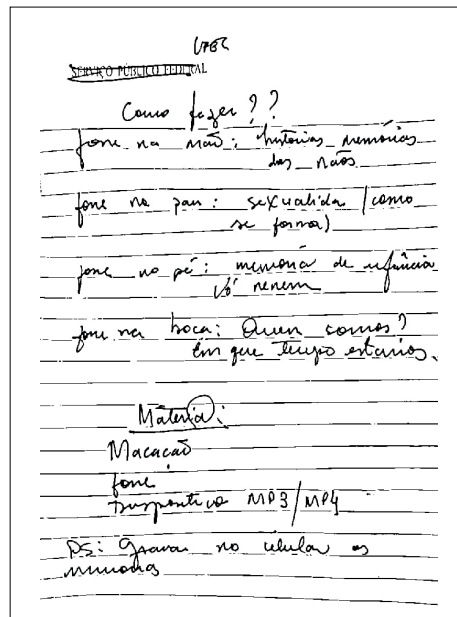 SERVIÇO PÚBLICO FEDERAL
Como fazer??
fone na mão: histórias memórias
das mãos
fone no pau: sexualida (como
se forma)
fone no pé: memoria de infância
Vó nenem
fone na boca: Quem somos?
Em que tempo estamos.
Materia:
Macacão
fone
Dispositivo MP3/MP4
PS: Gravar no celular as
memorias